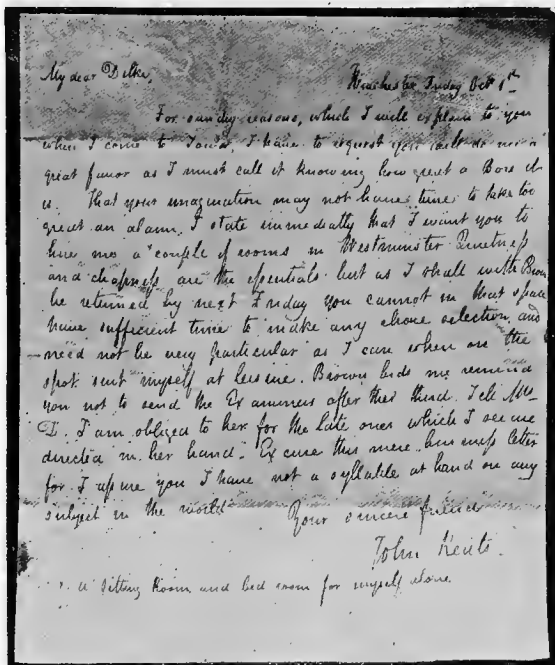 My dear Dilke, Winchester Friday Oct 1st
For sundry reasons, which I will explain to you
when I come to Town, I have to request you will do me a
great favor as I must call it knowing how great a Bore it
is. That your imagination may not have time to take too
great an alarm, I state immediatly that I want you to
hire me a couple of rooms in Westminster. Quietness
and cheapness are the essentials: but as I shall with Brown
be returned by next Friday you cannot in that space
have sufficient time to make any choice selection, and
need not be very particular as I can when on the
spot suit myself at leisure. Brown bids me remind
you not to send the Examiners after the third. Tell Mrs
D. I am obliged to her for the late ones which I see are
directed in her hand. Excuse this mere business letter
for I assure you I have not a syllable at hand on any
subject in the world. Your sincere friend
John Keats.
A Sitting Room and bed room for myself alone